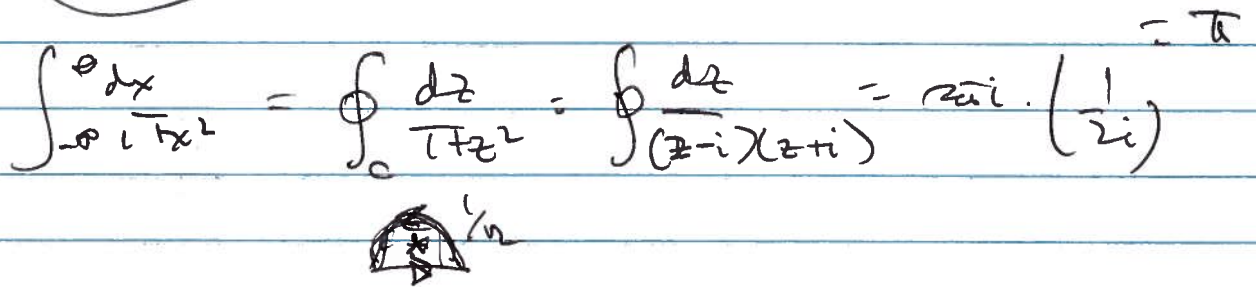 = π
∫_{-∞}^{∞} dx/(1+x²) = ∮_C dz/(1+z²) = ∮ dz/((z-i)(z+i)) = 2πi · (1/2i)